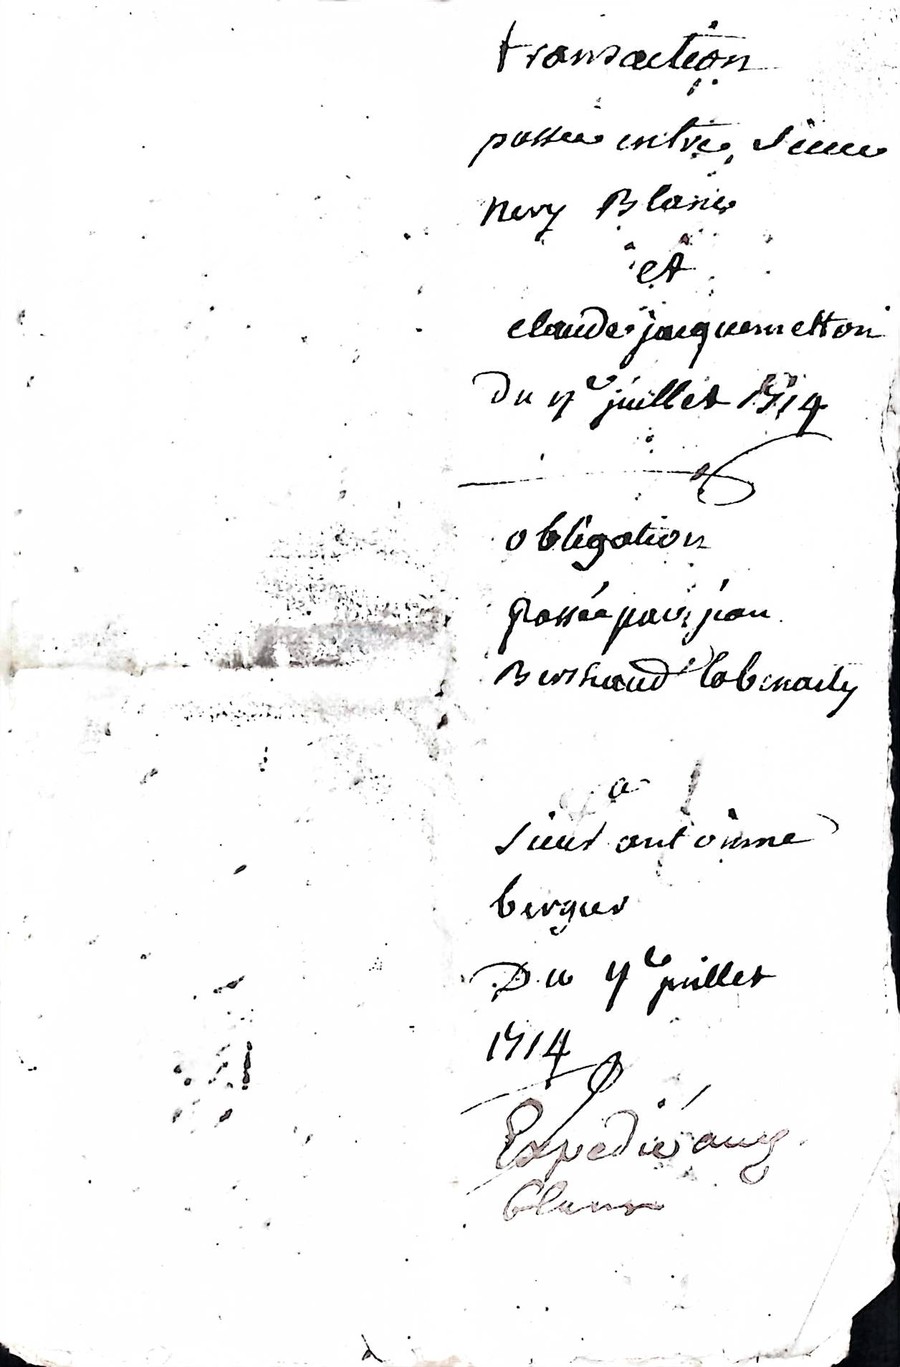 transaction
passée entre Sieur
nevy Blanc
et
claude jacquemetton
Du 7e juillet 1714
obligation
passée par jean
Berthaud
a
sieur antoinne
bergier
Du 7e juillet
1714
Expedié aud
blanc